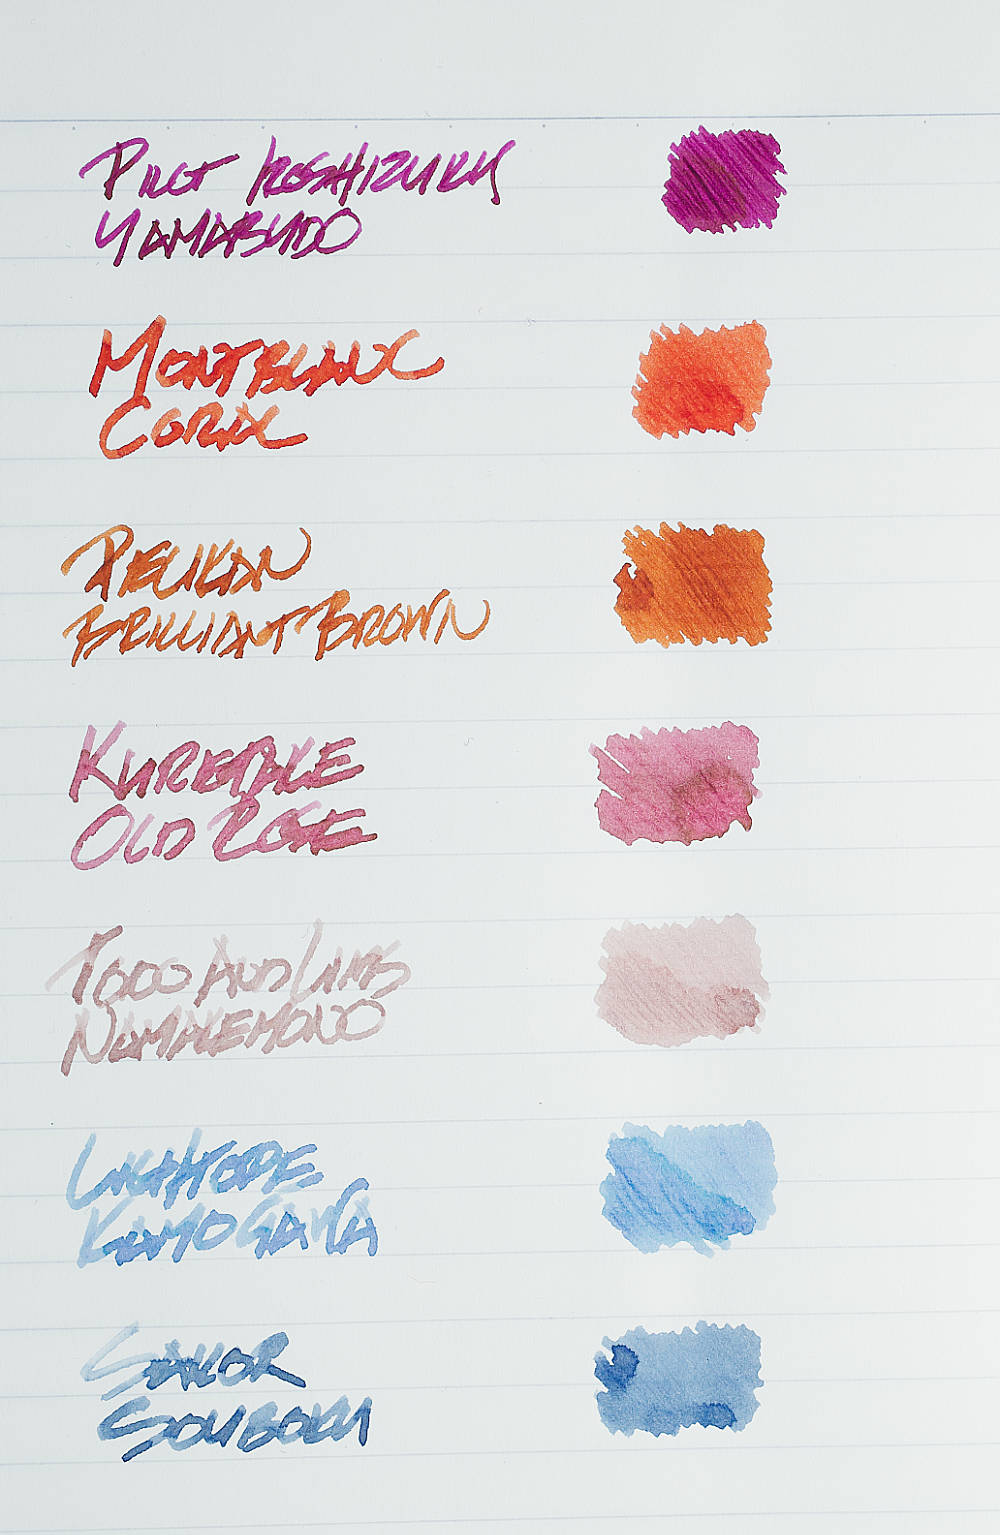 PILOT IROSHIZUKU
YAMABUDO
MONTBLANC
CORAL
PELIKAN
BRILLIANT BROWN
KURETAKE
OLD ROSE
TONO AND LIMS
NOMAKEMONO
LIGHTOPE
KAMOGAWA
SAILOR
SOUBOKU